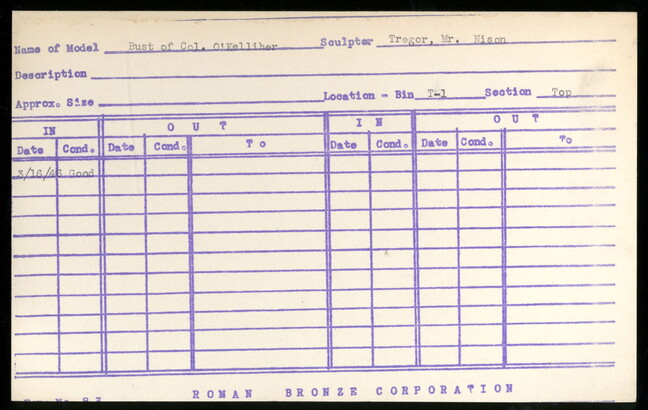 Name of Model Bust of Col. O'Kelliher Sculptor Tregor, Mr. Nison
Description
Approx. Size Location - Bin T-1 Section Top
IN OUT IN OUT
Date Cond. Date Cond. To Date Cond. Date Cond. To
3/16/46 Good
ROMAN BRONZE CORPORATION